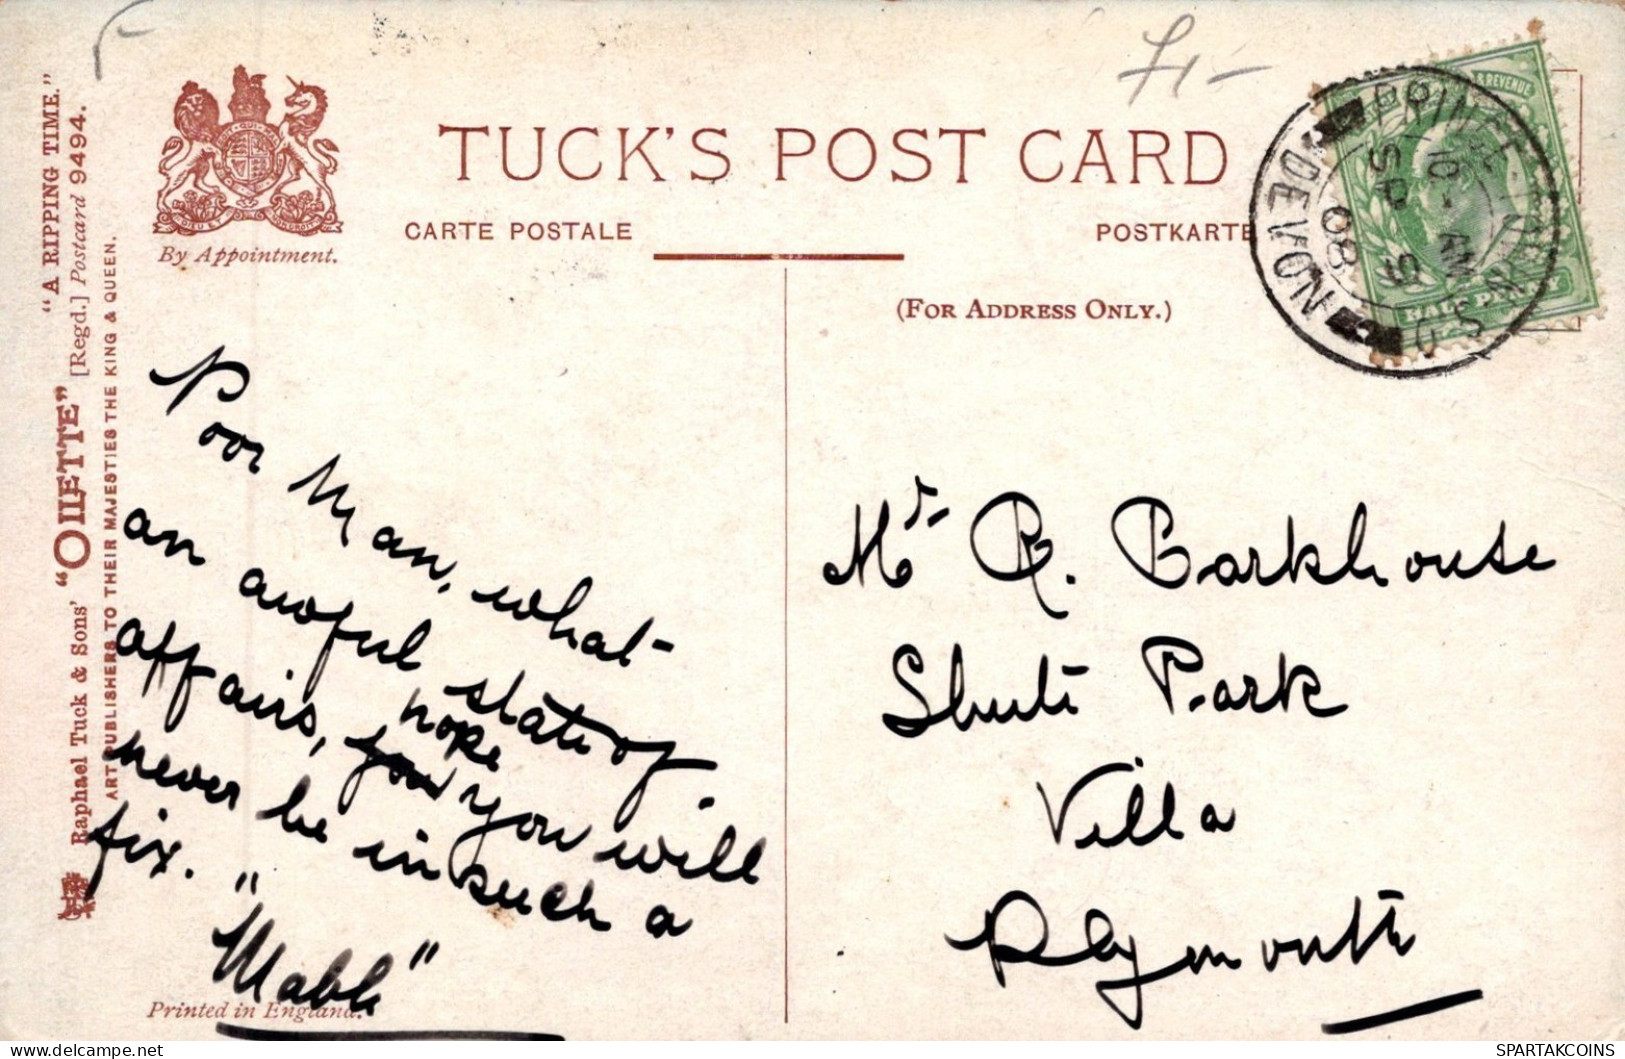 £1-
TUCK'S POST CARD
CARTE POSTALE
POSTKARTE
By Appointment.
(FOR ADDRESS ONLY.)
"A RIPPING TIME."
Raphael Tuck & Sons' "OILETTE" [Regd.] Postcard 9494.
ART PUBLISHERS TO THEIR MAJESTIES THE KING & QUEEN.
& REVENUE
HALFPENNY
PRINCETOWN
10- AM
SP 5
08
DEVON
Poor Man, what
an awful state of
affairs, hope you will
never be in such a
fix.
"Mabh"
Mr. R. Barkhouse
Shute Park
Villa
Plymouth
Printed in England.
SPARTAKCOINS